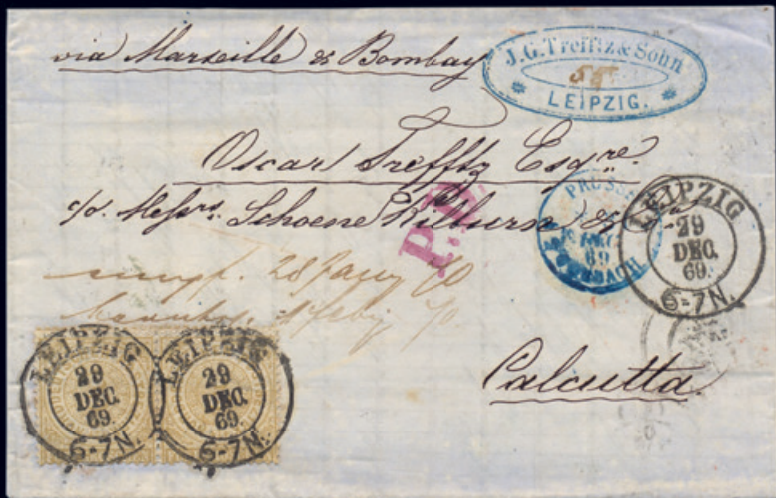 via Marseille & Bombay
J. G. Trefftz & Sohn
LEIPZIG.
Oscar Trefftz Esqre.
c/o. Messrs. Schoene Kilburn & Co
P.D.
PRUSSE
69
FORBACH
LEIPZIG
29
DEC.
69.
6-7N.
empf. 28 Jany 70
Calcutta.
LEIPZIG
29
DEC.
69.
6-7N.
LEIPZIG
29
DEC.
69.
6-7N.